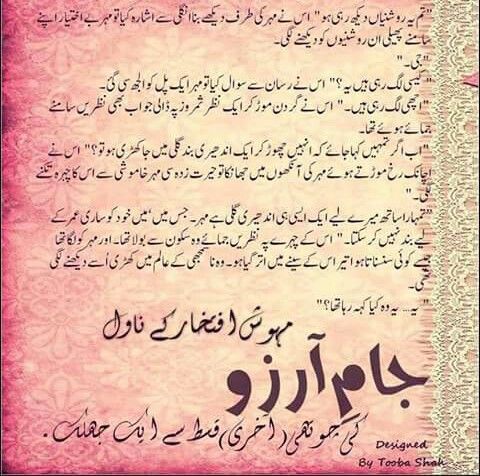 "تم یہ روشنیاں دیکھ رہی ہو" اس نے مہر کی طرف دیکھے بنا انگلی سے اشارہ کیا تو مہر بے اختیار اپنے
سامنے پھیلی ان روشنیوں کو دیکھنے لگی۔
"جی۔"
"کیسی لگ رہی ہیں یہ؟" اس نے رسان سے سوال کیا تو مہر ایک پل کو الجھ سی گئی۔
"اچھی لگ رہی ہیں۔" اس نے گردن موڑ کر ایک نظر شمروز پہ ڈالی جو اب بھی نظریں سامنے
جمائے ہوئے تھا۔
"اب اگر تمہیں کہا جائے کہ انہیں چھوڑ کر ایک اندھیری بند گلی میں جا کھڑی ہو تو؟" اس نے
اچانک رخ موڑتے ہوئے مہر کی آنکھوں میں جھانکا تو حیرت زدہ سی مہر خاموشی سے اس کا چہرہ تکنے
لگی۔"
"تمہارا ساتھ میرے لیے ایک ایسی ہی اندھیری گلی ہے مہر۔ جس میں 'میں' خود کو ساری عمر کے
لیے بند نہیں کر سکتا۔" اس کے چہرے پہ نظریں جمائے وہ سکون سے بولا تھا۔ اور مہر کو لگا تھا
جیسے کوئی سنسناتا ہوا تیر اس کے سینے میں اتر گیا ہو۔ وہ ناسمجھی کے عالم میں کھڑی اُسے دیکھنے لگی
تھی۔
"یہ... یہ وہ کیا کہہ رہا تھا؟"
مہوش افتخار کے ناول
جام آرزو
کی چوتھی (آخری) قسط سے ایک جھلک۔
Designed
By Tooba Shah